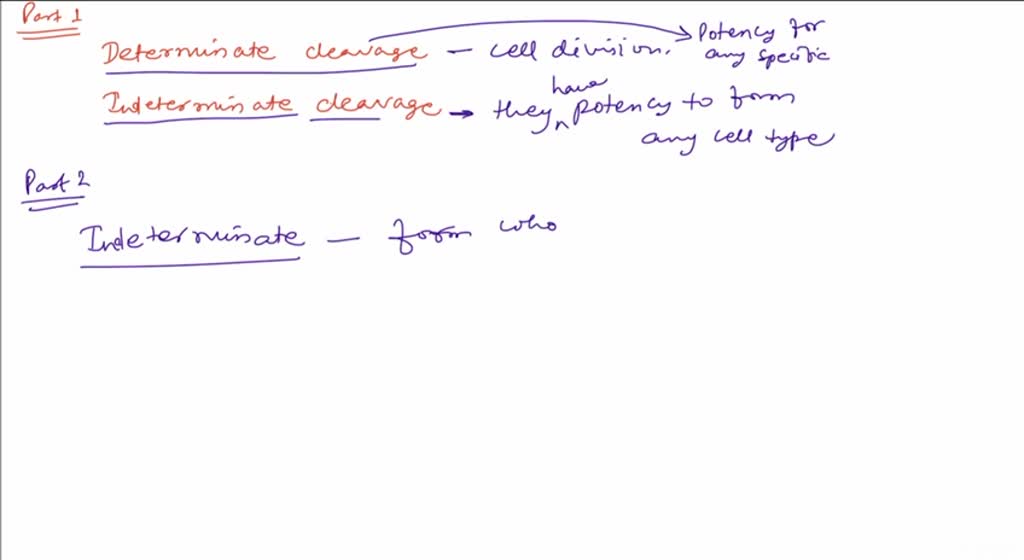 Part 1
Determinate cleavage – cell division. → Potency for
any specific
Indeterminate cleavage → they have potency to form
any cell type
Part 2
Indeterminate – form who